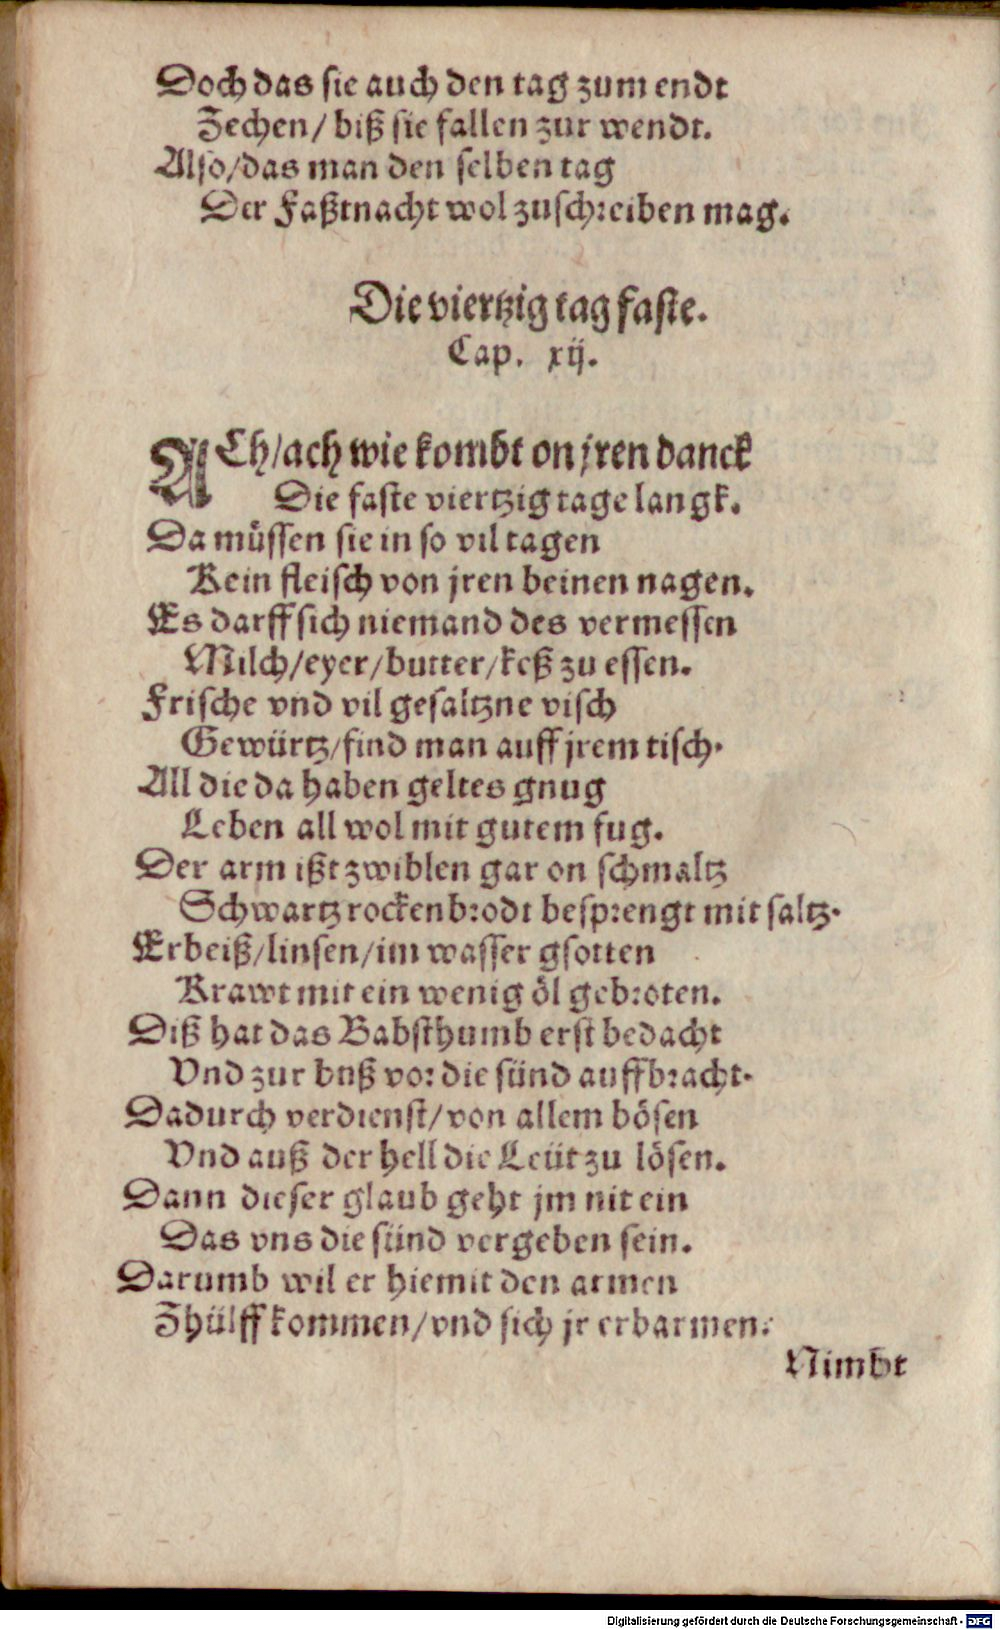 Doch das sie auch den tag zum endt
Zechen/ biß sie fallen zur wendt.
Also/das man den selben tag
Der Faßtnacht wol zuschreiben mag.
Die viertzig tag faste.
Cap. xij.
ACh/ach wie kombt on jren danck
Die faste viertzig tage langk.
Da müssen sie in so vil tagen
Kein fleisch von jren beinen nagen.
Es darff sich niemand des vermessen
Milch/eyer/butter/keß zu essen.
Frische vnd vil gesaltzne visch
Gewürtz/find man auff jrem tisch.
All die da haben geltes gnug
Leben all wol mit gutem fug.
Der arm ißt zwiblen gar on schmaltz
Schwartz rockenbrodt besprengt mit saltz.
Erbeiß/linsen/im wasser gsotten
Krawt mit ein wenig öl gebroten.
Diß hat das Babsthumb erst bedacht
Vnd zur buß vor die sünd auffbracht.
Dadurch verdienst/von allem bösen
Vnd auß der hell die Leüt zu lösen.
Dann dieser glaub geht jm nit ein
Das vns die sünd vergeben sein.
Darumb wil er hiemit den armen
Zhülff kommen/vnd sich jr erbarmen.
Nimbt
Digitalisierung gefördert durch die Deutsche Forschungsgemeinschaft - DFG